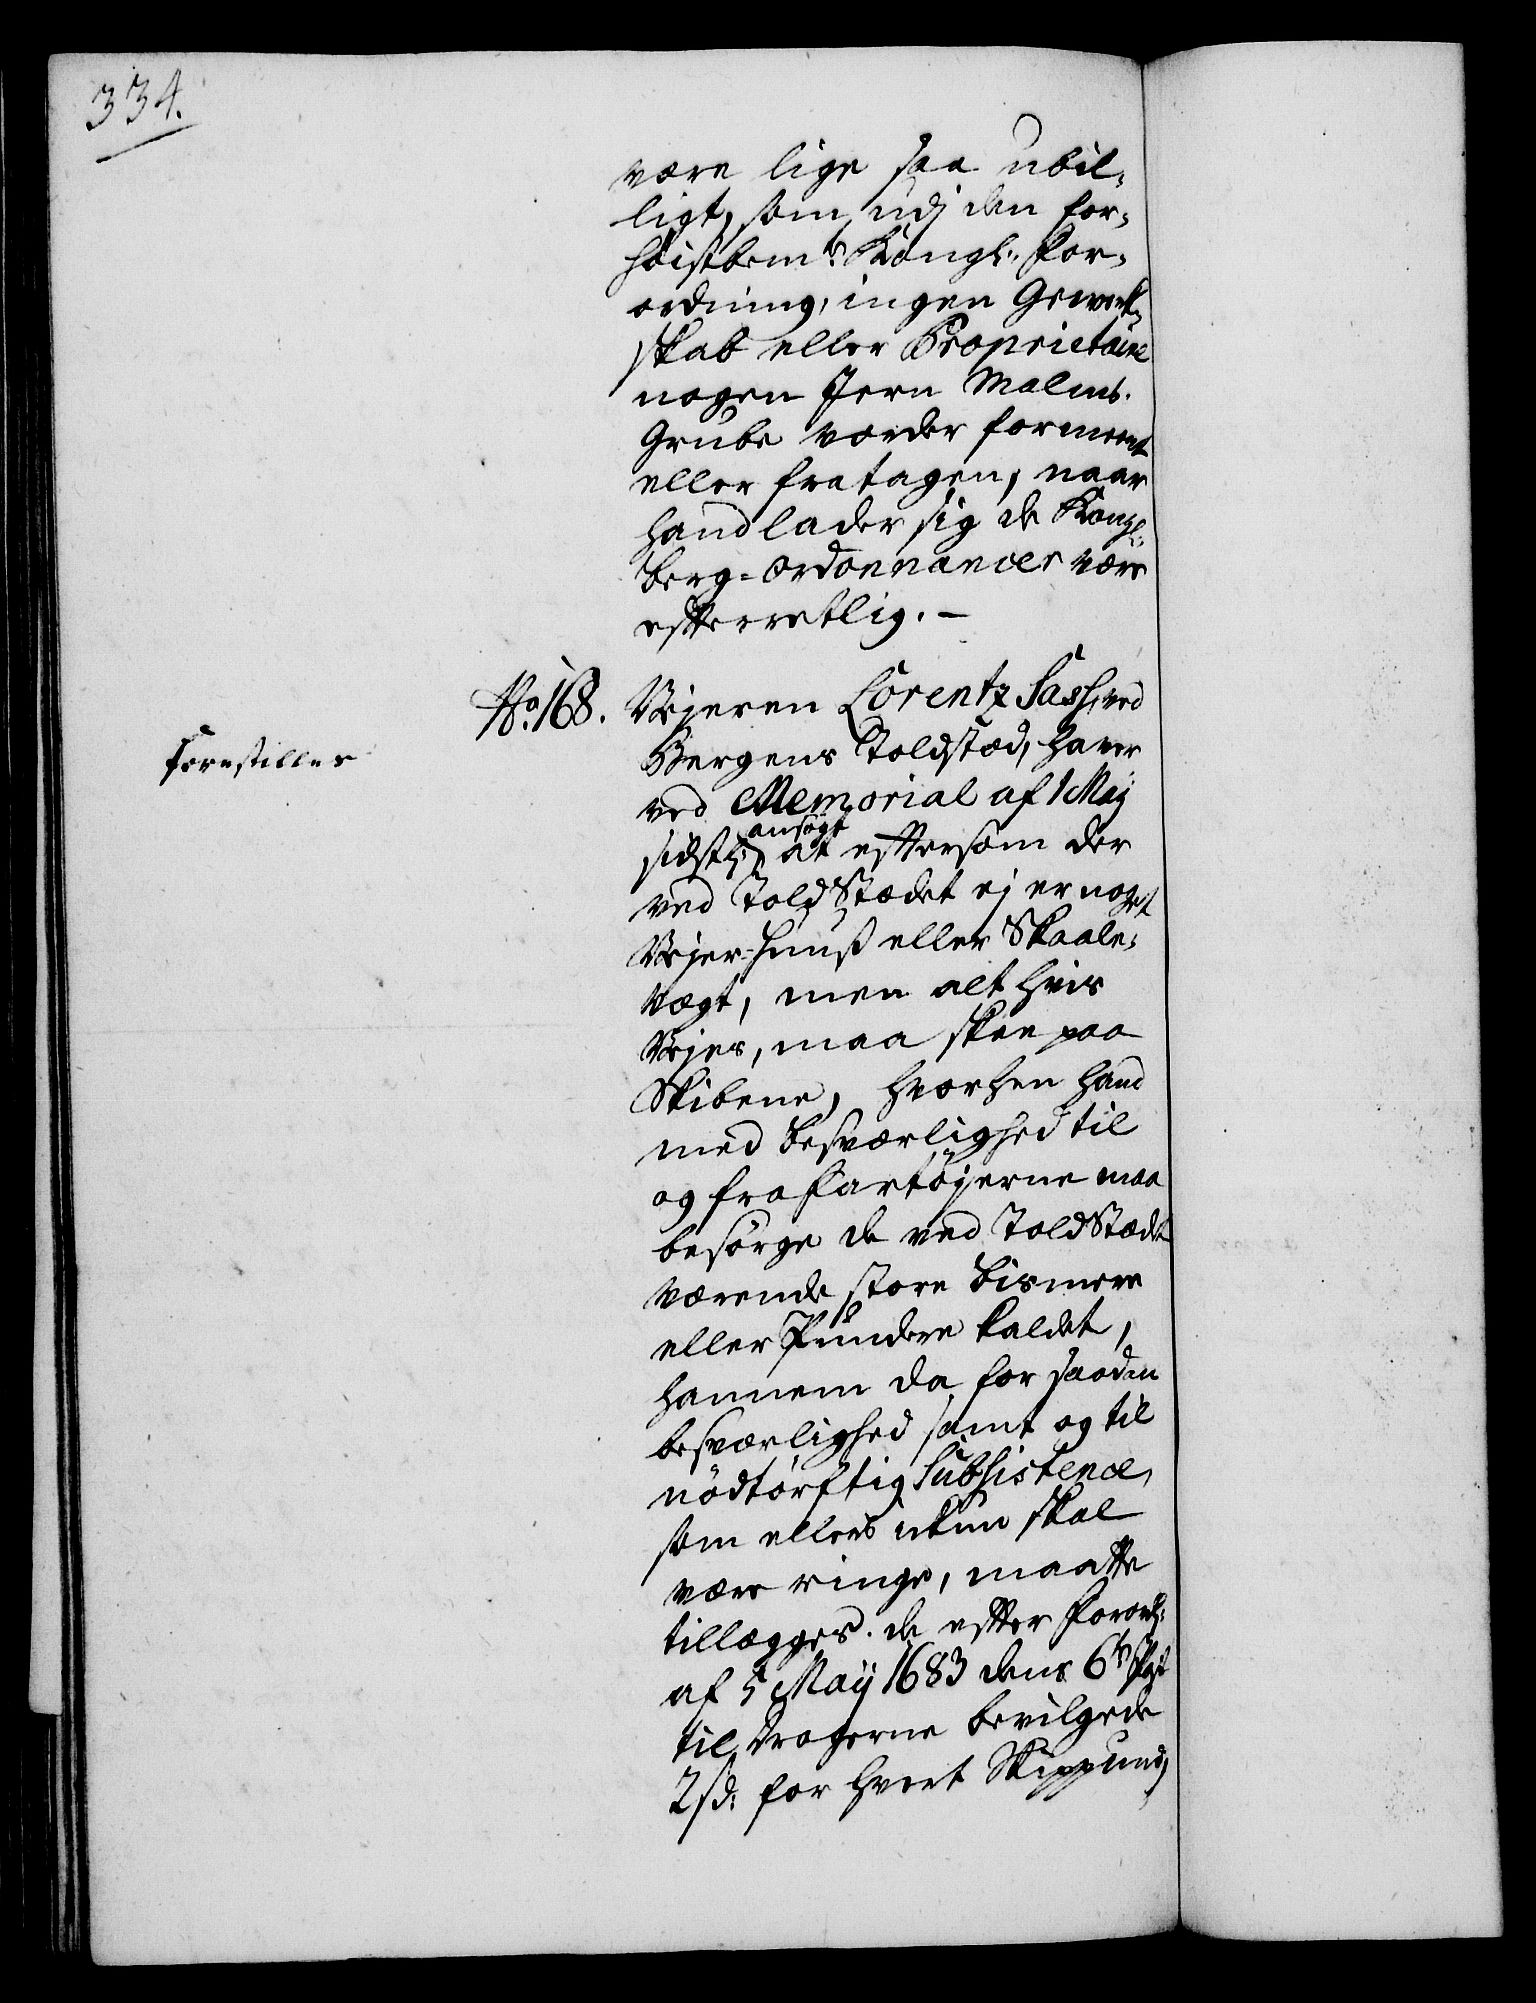 334.
være lige saa ubil-
ligt, som udj den for-
høistbem.te Kongl. For-
ordning, ingen Gewerk-
skab eller Proprietaire
nogen Jern Malms.
Grube vorder formeent
eller fratagen, naar
hand lader sig de Kongl:
berg-ordonnancer være
efterrettlig. -
No. 168. Vejeren Lorentz Sass, ved
Forestilles
Bergens Toldstæd, haver
ved Memorial af 1 Maij
sidstl: ansøgt at eftersom der
ved ToldStædet ej er noget
Vejer-Huuß eller Skaale-
vægt, men alt hvis
Vejes, maa skee paa
Skibene, hvorhen hand
med besværlighed til
og fra fartøyerne maa
besørge de ved ToldStædet
værende store bismere
eller Pundere kaldet,
hannem da for saadan
besværlighed samt og til
nødtørftig Subsistence,
som ellers ickun skal
være ringe, maatte
tillægges de efter Forordn:
af 5 Maij 1683 dens 6te Post
til Dragerne bevilgede
2 sd: for hvert Skippund,